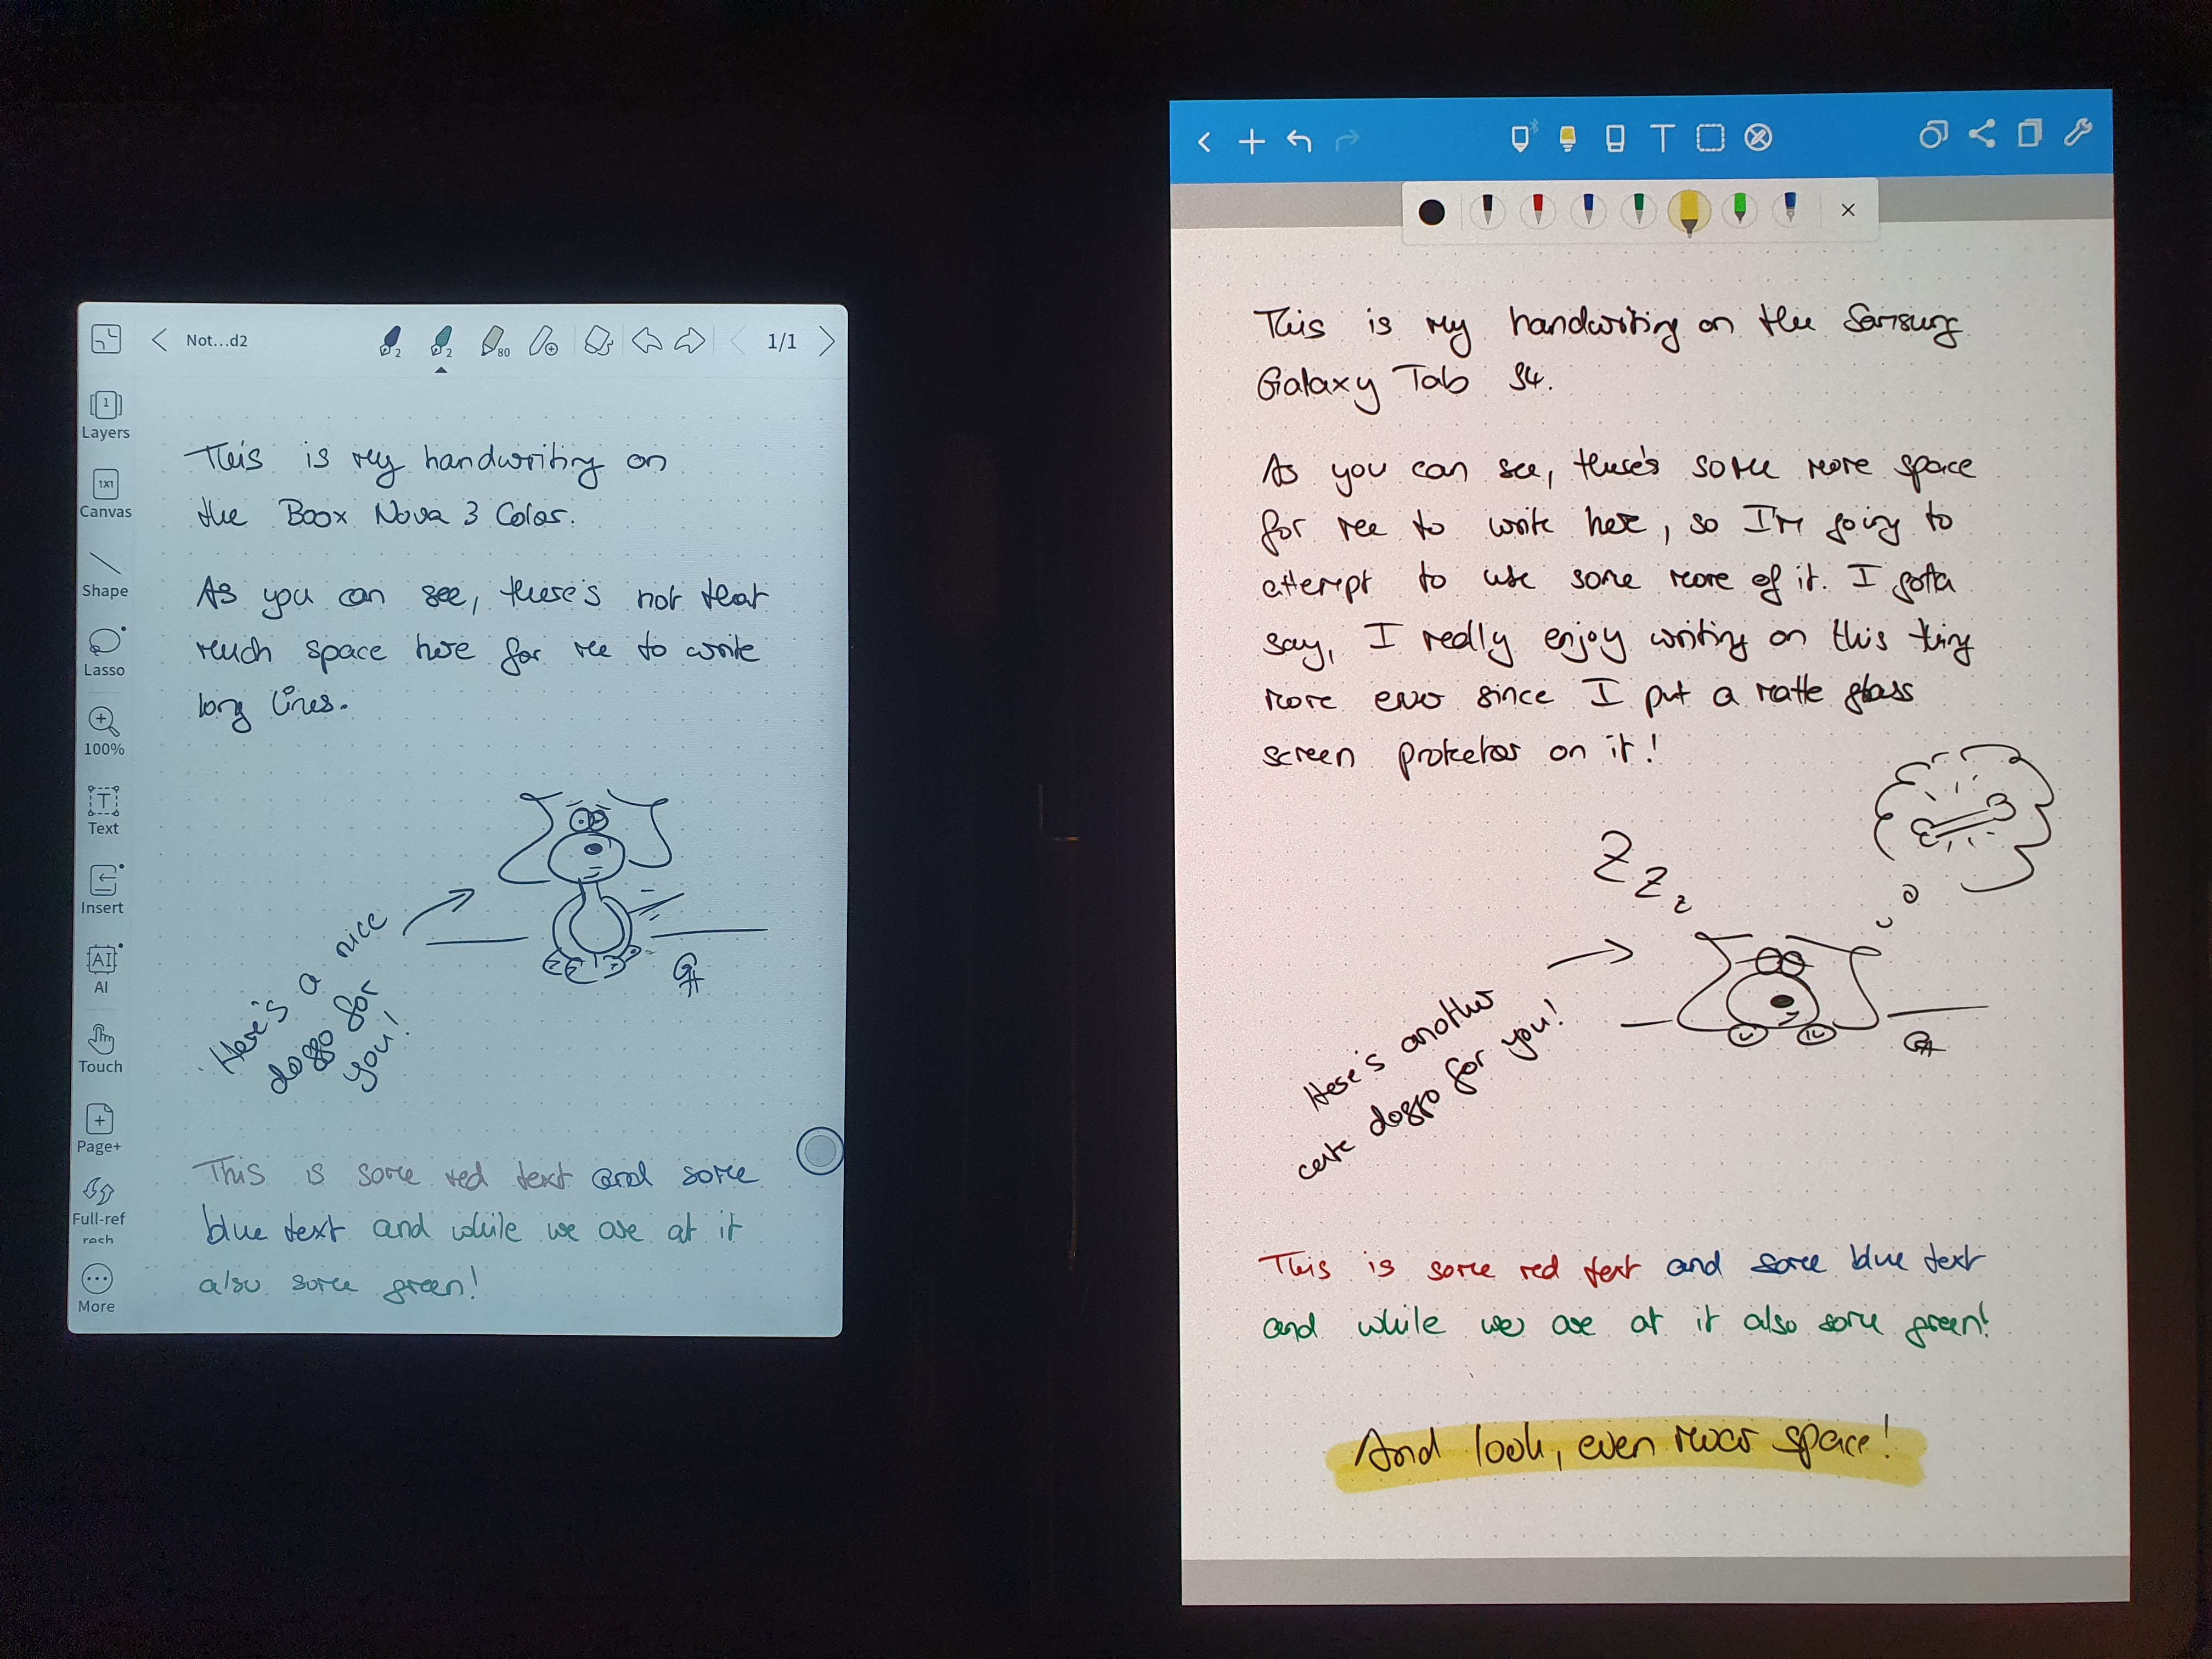 Not...d2
2
2
80
1/1
1
Layers
1X1
Canvas
Shape
Lasso
100%
T
Text
Insert
AI
AI
Touch
Page+
Full-ref
resh
More
This is my handwriting on
the Boox Nova 3 Color.
As you can see, there's not that
much space here for me to write
long lines.
Here's a nice
doggo for
you!
This is some red text and some
blue text and while we are at it
also some green!
T
This is my handwriting on the Samsung
Galaxy Tab S4.
As you can see, there's some more space
for me to write here, so I'm going to
attempt to use some more of it. I gotta
say, I really enjoy writing on this thing
more ever since I put a matte glass
screen protector on it!
Z z z
Here's another
cute doggo for you!
This is some red text and some blue text
and while we are at it also some green!
And look, even more space!